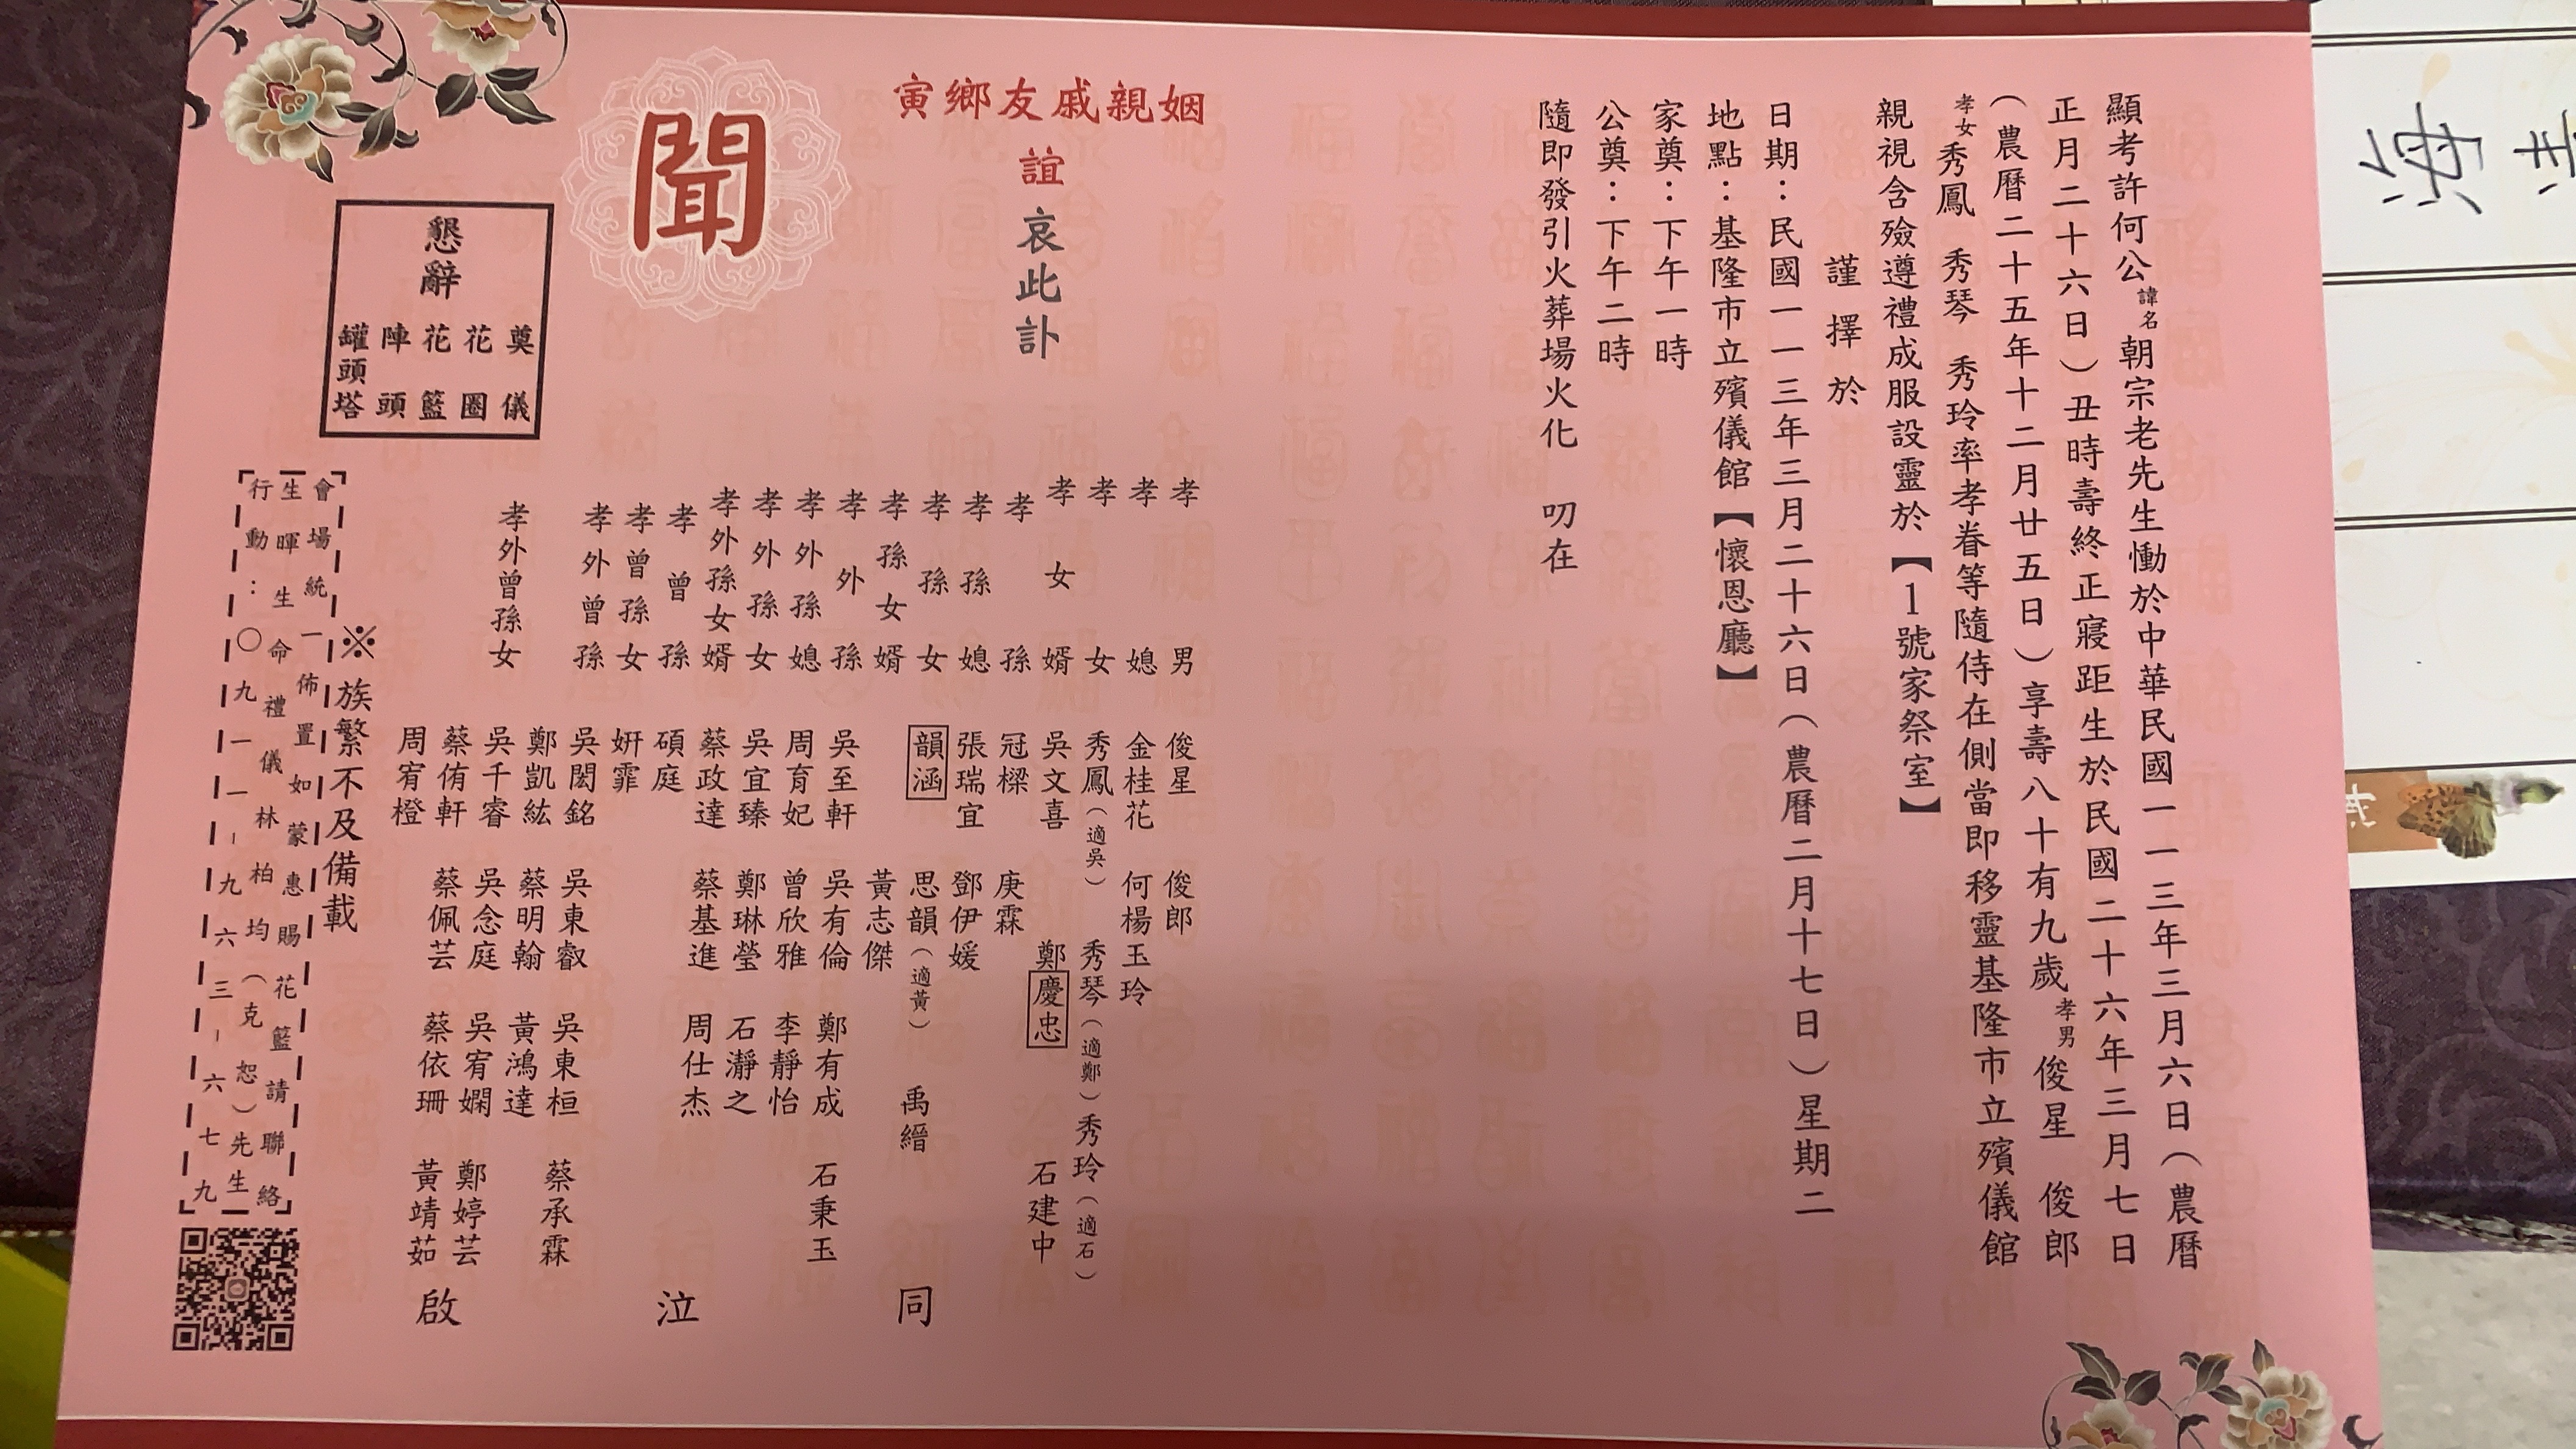 顯考許何公諱名朝宗老先生慟於中華民國一一三年三月六日（農曆
正月二十六日）丑時壽終正寢距生於民國二十六年三月七日
（農曆二十五年十二月廿五日）享壽八十有九歲孝男俊星 俊郎
孝女秀鳳 秀琴 秀玲率孝眷等隨侍在側當即移靈基隆市立殯儀館
親視含殮遵禮成服設靈於【1號家祭室】
謹擇於
日期：民國一一三年三月二十六日（農曆二月十七日）星期二
地點：基隆市立殯儀館【懷恩廳】
家奠：下午一時
公奠：下午二時
隨即發引火葬場火化 叨在
姻親戚友鄉寅
誼 哀此訃
聞
孝男 俊星 俊郎
孝媳 金桂花 何楊玉玲
孝女 秀鳳（適吳） 秀琴（適鄭） 秀玲（適石）
孝女婿 吳文喜 鄭慶忠 石建中
孝孫 冠樑 庚霖
孝孫媳 張瑞宜 鄧伊媛
孝孫女 韻涵 思韻（適黃） 禹縉
孝孫女婿 黃志傑
孝外孫 吳至軒 吳有倫 鄭有成 石秉玉
孝外孫媳 周育妃 曾欣雅 李靜怡
孝外孫女 吳宜臻 鄭琳瑩 石瀞之
孝外孫女婿 蔡政達 蔡基進 周仕杰
孝曾孫 碩庭
孝曾孫女 妍霏
孝外曾孫 吳閎銘 吳東叡 吳東桓 蔡承霖
鄭凱紘 蔡明翰 黃鴻達
孝外曾孫女 吳千睿 吳念庭 吳宥嫻 鄭婷芸
蔡侑軒 蔡佩芸 蔡依珊 黃靖茹
周宥橙
同泣啟
※族繁不及備載
懇辭
奠儀
花圈
花籃
陣頭
罐頭塔
會場統一佈置如蒙惠賜花籃請聯絡
生暉生命禮儀林柏均（克恕）先生
行動：〇九一一-九六三-六七九